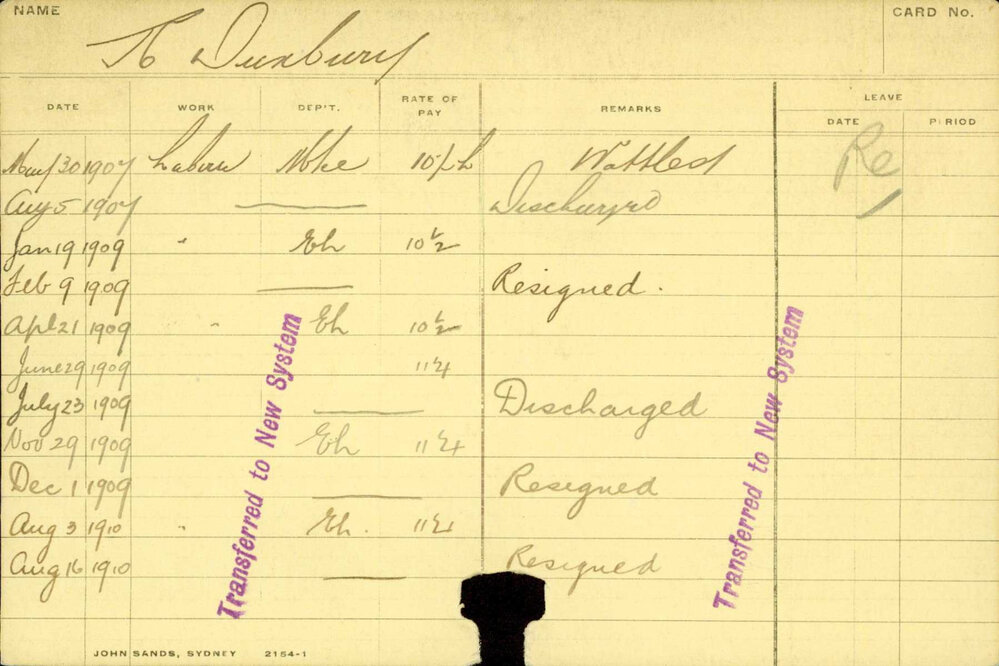 NAME
CARD No.
Duxbury
DATE WORK DEP'T. RATE OF PAY REMARKS LEAVE
DATE PERIOD
May 30 1907 Labour 10 ph
Aug 5 1907 Discharged
Jan 19 1909 " Eh 10 1/2
Feb 9 1909 Resigned.
Apl 21 1909 " Eh 10 1/2
June 29 1909 11 1/4
July 23 1909 Discharged
Nov 29 1909 Eh 11 1/4
Dec 1 1909 Resigned
Aug 3 1910 " Eh. 11 1/4
Aug 16 1910 Resigned
Re
Transferred to New System
Transferred to New System
JOHN SANDS, SYDNEY 2154-1